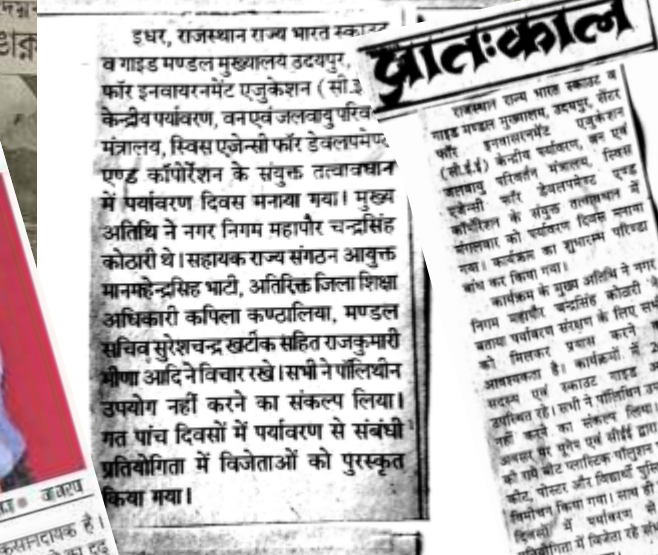 इधर, राजस्थान राज्य भारत स्काउट
व गाइड मण्डल मुख्यालय उदयपुर,
फॉर इनवायरनमेंट एजुकेशन (सी.ई
केन्द्रीय पर्यावरण, वन एवं जलवायु परिव
मंत्रालय, स्विस एजेन्सी फॉर डेवलपमेण्ट
एण्ड कॉर्पोरेशन के संयुक्त तत्वावधान
में पर्यावरण दिवस मनाया गया। मुख्य
अतिथि ने नगर निगम महापौर चन्द्रसिंह
कोठारी थे। सहायक राज्य संगठन आयुक्त
मानमहेन्द्रसिह भाटी, अतिरिक्त जिला शिक्षा
अधिकारी कपिला कण्ठालिया, मण्डल
सचिव सुरेशचन्द्र खटीक सहित राजकुमारी
मीणा आदि ने विचार रखे। सभी ने पॉलिथीन
उपयोग नहीं करने का संकल्प लिया।
गत पांच दिवसों में पर्यावरण से संबंधी
प्रतियोगिता में विजेताओं को पुरस्कृत
किया गया।
प्रातःकाल
राजस्थान राज्य भारत स्काउट व
गाइड मण्डल मुख्यालय, उदयपुर, सेंटर
फॉर इनवासरनमेंट एजुकेशन
(सी.ई.ई) केन्द्रीय पर्यावरण, वन एवं
जलवायु परिवर्तन मंत्रालय, स्विस
एजेन्सी फॉर डेवलपमेण्ट एण्ड
कॉर्पोरेशन के संयुक्त तत्वावधान में
मंगलवार को पर्यावरण दिवस मनाया
गया। कार्यक्रम का शुभारम्भ परिण्डा
बांध कर किया गया।
कार्यक्रम के मुख्य अतिथि ने नगर
निगम महापौर चन्द्रसिंह कोठारी ने
बताया पर्यावरण संरक्षण के लिए सभी
को मिलकर प्रयास करने
आवश्यकता है। कार्यक्रमों में
सदस्य एवं स्काउट गाइड
उपस्थित रहे। सभी ने पॉलिथिन
नहीं करने का संकल्प लिया।
अवसर पर यूनेप एवं सीईई द्वारा
को गये बीट प्लास्टिक पॉलुशन
बोट, पोस्टर और विद्यार्थी
विमोचन किया गया। साथ ही
दिवसों में पर्यावरण से
में विजेता रहे